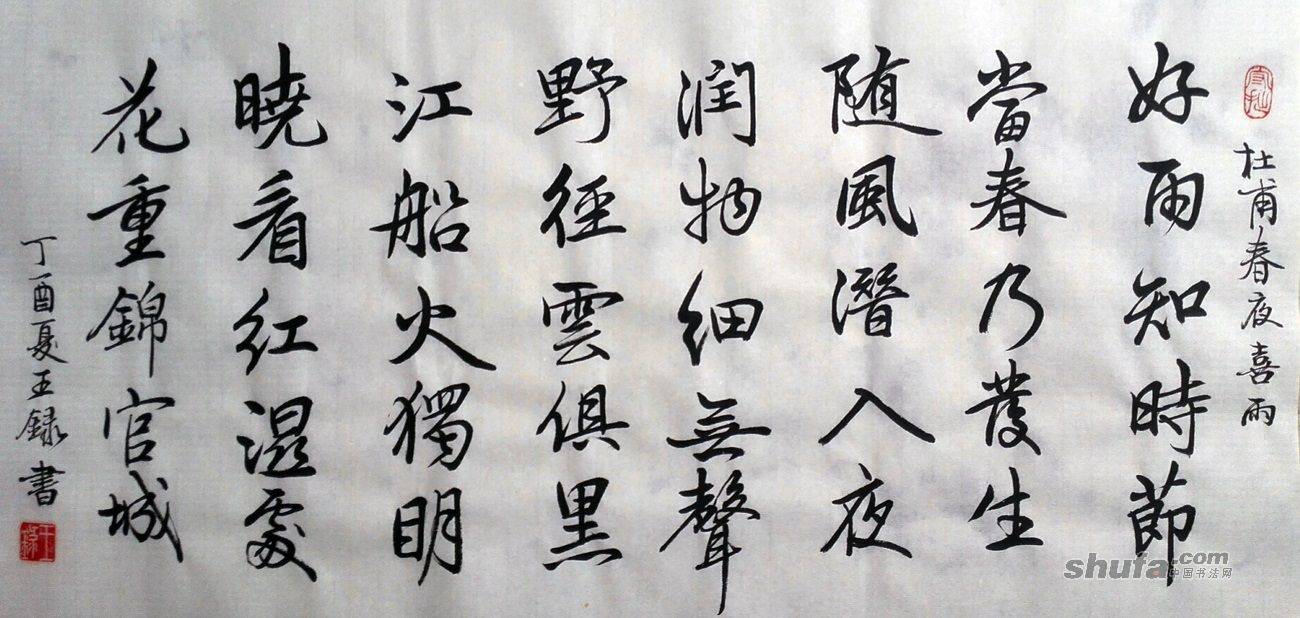 杜甫春夜喜雨
好雨知時節
當春乃發生
随風潛入夜
润物细無聲
野徑雲俱黑
江船火獨明
曉看红濕處
花重錦官城
丁酉夏王録書
shufa.com
中国书法网